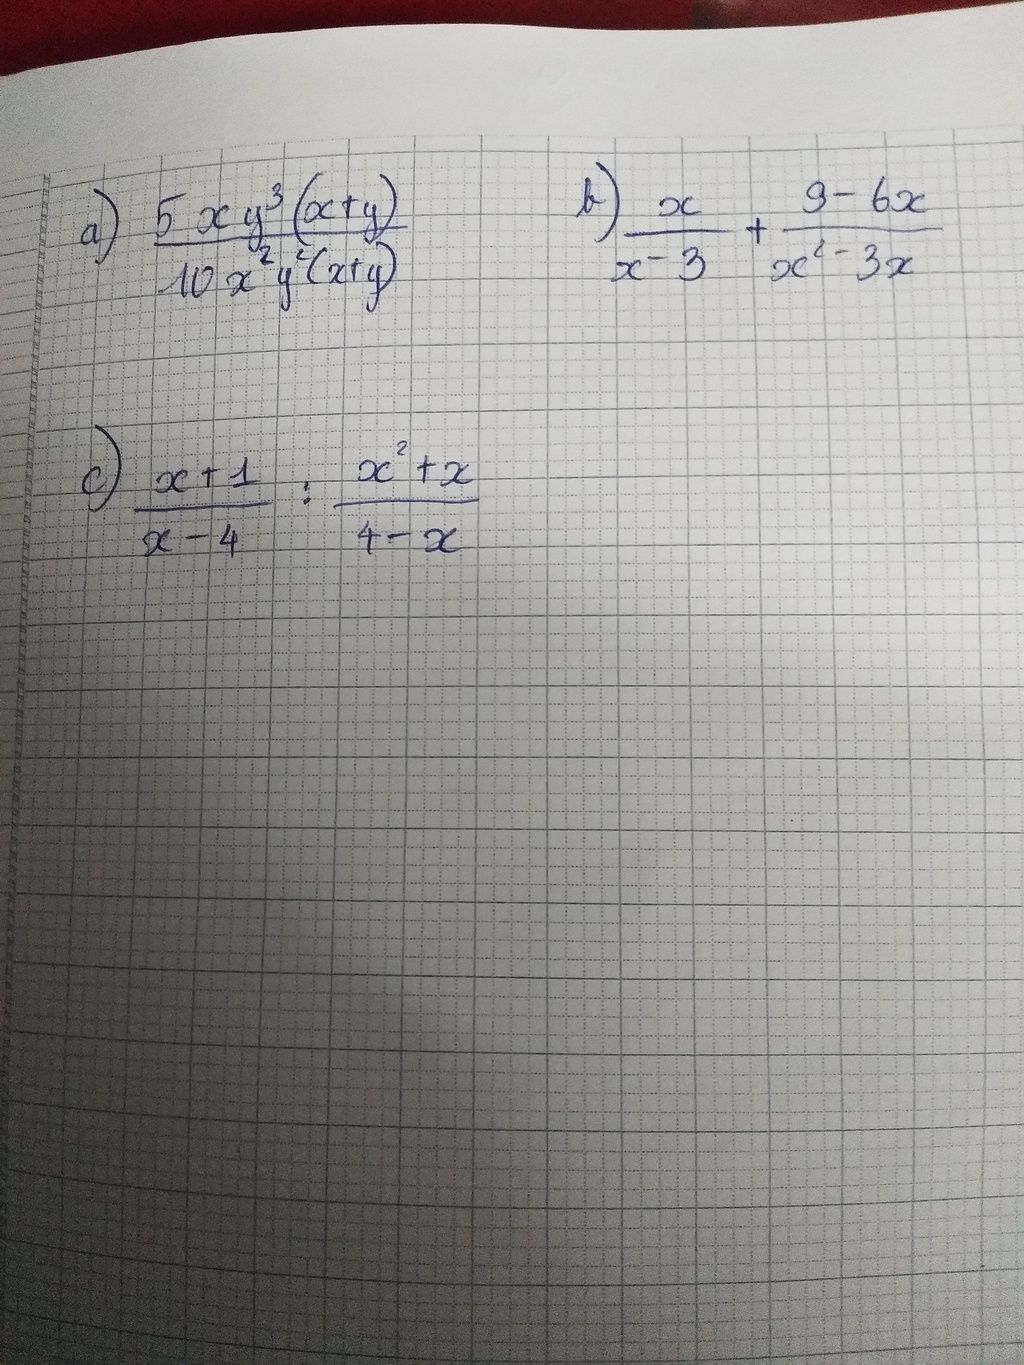 a) 5xy³(x+y) / 10x²y²(x+y)    b) x / x-3 + 9-6x / x²-3x
c) x+1 / x-4 : x²+x / 4-x